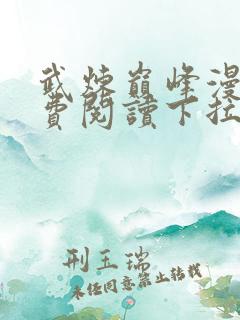 武炼巅峰漫
費閱讀下拉
刑玉瑞
未经同意禁止转载